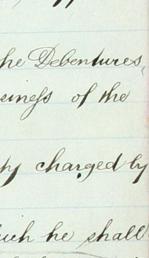 he Debentures,
siness of the
ty charged by
ich he shall